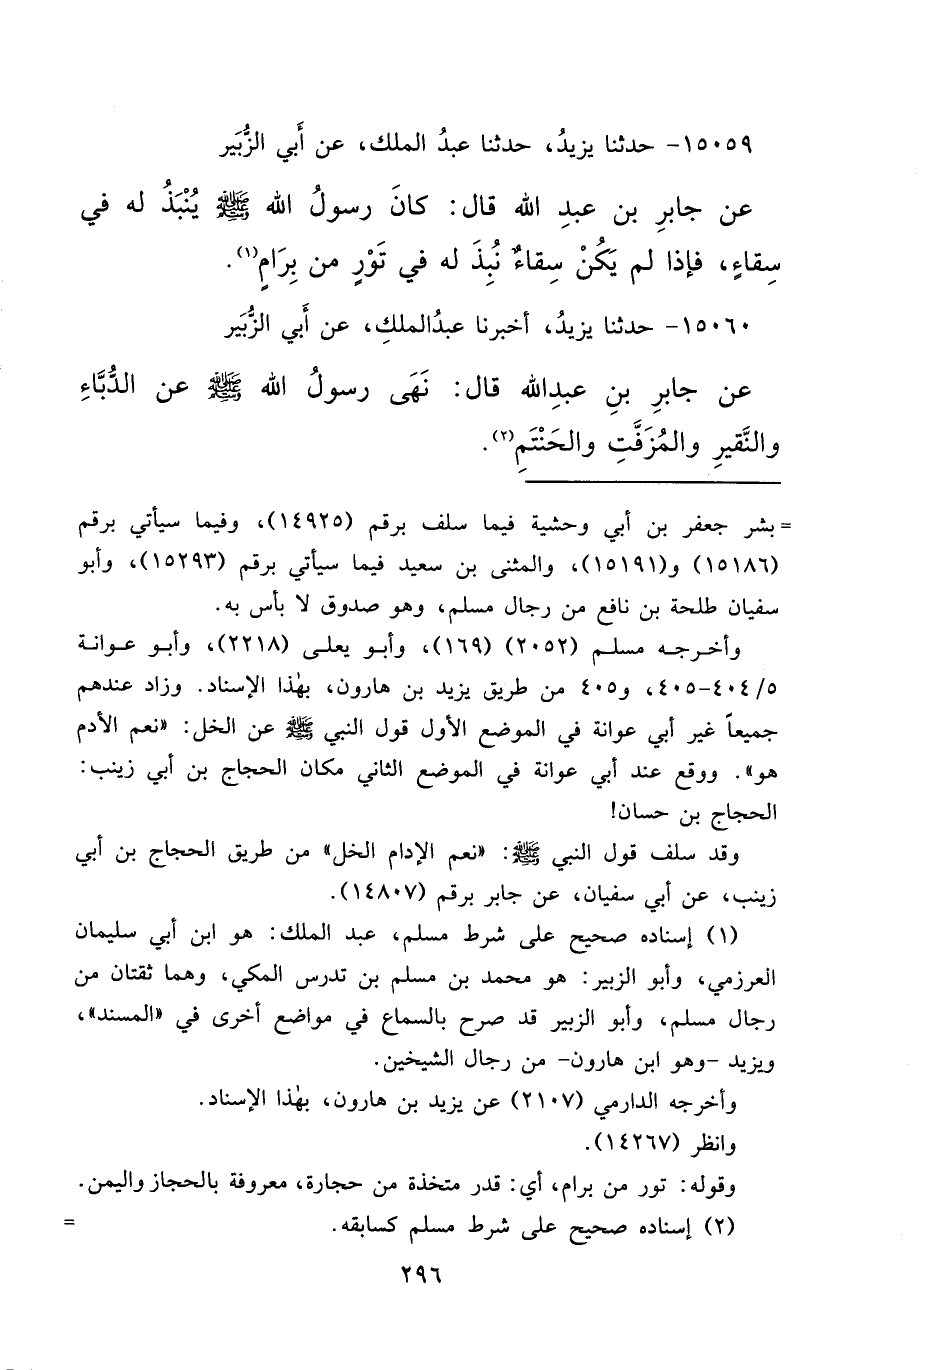 ١٥٠٥٩- حدثنا يزيدُ، حدثنا عبدُ الملك، عن أَبي الزُّبَير
عن جابرِ بن عبدِ الله قال: كانَ رسولُ الله ﷺ يُنْبَذُ له في
سِقاءٍ، فإذا لم يَكُنْ سِقاءٌ نُبِذَ له في تَوْرٍ من بِرَامٍ(١).
١٥٠٦٠- حدثنا يزيدُ، أخبرنا عبدُالملكِ، عن أَبي الزُّبَير
عن جابرِ بنِ عبدِالله قال: نَهَى رسولُ الله ﷺ عن الدُّبَّاءِ
والنَّقيرِ والمُزَفَّتِ والحَنْتَمِ(٢).
= بشر جعفر بن أبي وحشية فيما سلف برقم (١٤٩٢٥)، وفيما سيأتي برقم
(١٥١٨٦) و(١٥١٩١)، والمثنى بن سعيد فيما سيأتي برقم (١٥٢٩٣)، وأبو
سفيان طلحة بن نافع من رجال مسلم، وهو صدوق لا بأس به.
وأخرجه مسلم (٢٠٥٢) (١٦٩)، وأبو يعلى (٢٢١٨)، وأبو عوانة
٥/٤٠٤-٤٠٥، و٤٠٥ من طريق يزيد بن هارون، بهٰذا الإسناد. وزاد عندهم
جميعاً غير أبي عوانة في الموضع الأول قول النبي ﷺ عن الخل: «نعم الأدم
هو». ووقع عند أبي عوانة في الموضع الثاني مكان الحجاج بن أبي زينب:
الحجاج بن حسان!
وقد سلف قول النبي ﷺ: «نعم الإدام الخل» من طريق الحجاج بن أبي
زينب، عن أبي سفيان، عن جابر برقم (١٤٨٠٧).
(١) إسناده صحيح على شرط مسلم، عبد الملك: هو ابن أبي سليمان
العرزمي، وأبو الزبير: هو محمد بن مسلم بن تدرس المكي، وهما ثقتان من
رجال مسلم، وأبو الزبير قد صرح بالسماع في مواضع أخرى في «المسند»،
ويزيد -وهو ابن هارون- من رجال الشيخين.
وأخرجه الدارمي (٢١٠٧) عن يزيد بن هارون، بهٰذا الإسناد.
وانظر (١٤٢٦٧).
وقوله: تور من برام، أي: قدر متخذة من حجارة، معروفة بالحجاز واليمن.
(٢) إسناده صحيح على شرط مسلم كسابقه. =
٢٩٦